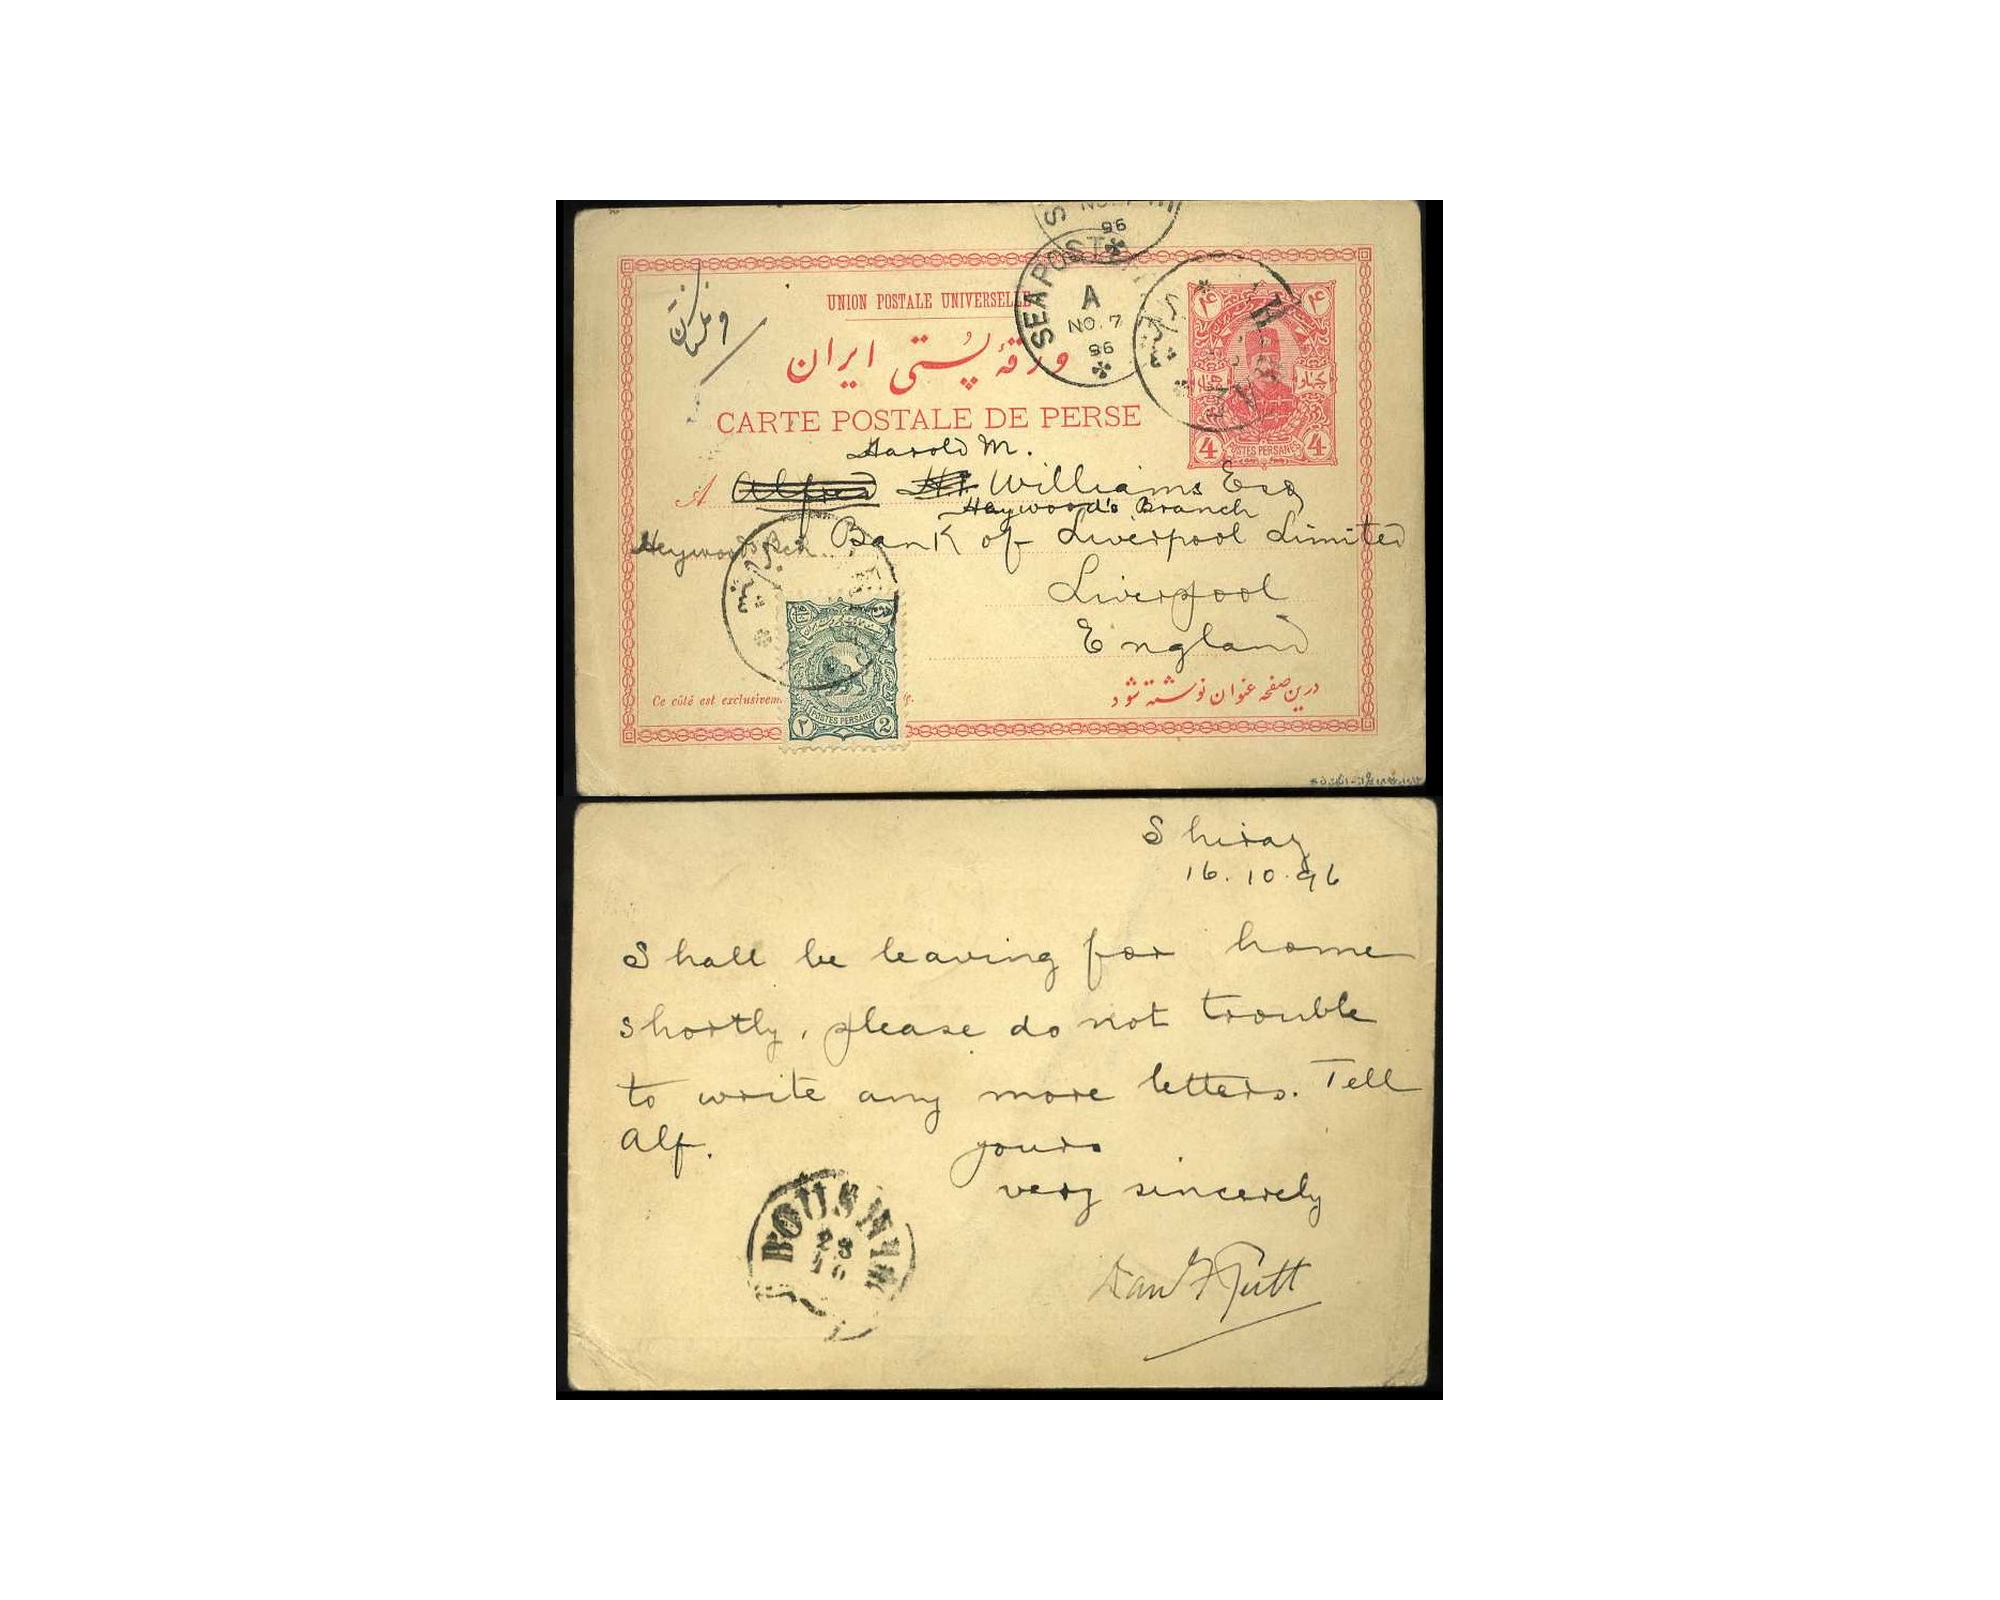 UNION POSTALE UNIVERSELLE
ورقهٔ پُستی ایران
CARTE POSTALE DE PERSE
SEA POST
A
NO. 7
96
NO. 7
96
شیراز
4 POSTES PERSANES 4
Harold M.
A Alfred Williams Esq
Heywood's Branch
Heywoods Bch. Bank of Liverpool Limited
Liverpool
England
شیراز
POSTES PERSANES
۲ 2
Ce côté est exclusivem
درین صفحه عنوان نوشته شود
Shiraz
16.10.96
Shall be leaving for home
shortly, please do not trouble
to write any more letters. Tell
Alf. yours
very sincerely
BOUSHIR